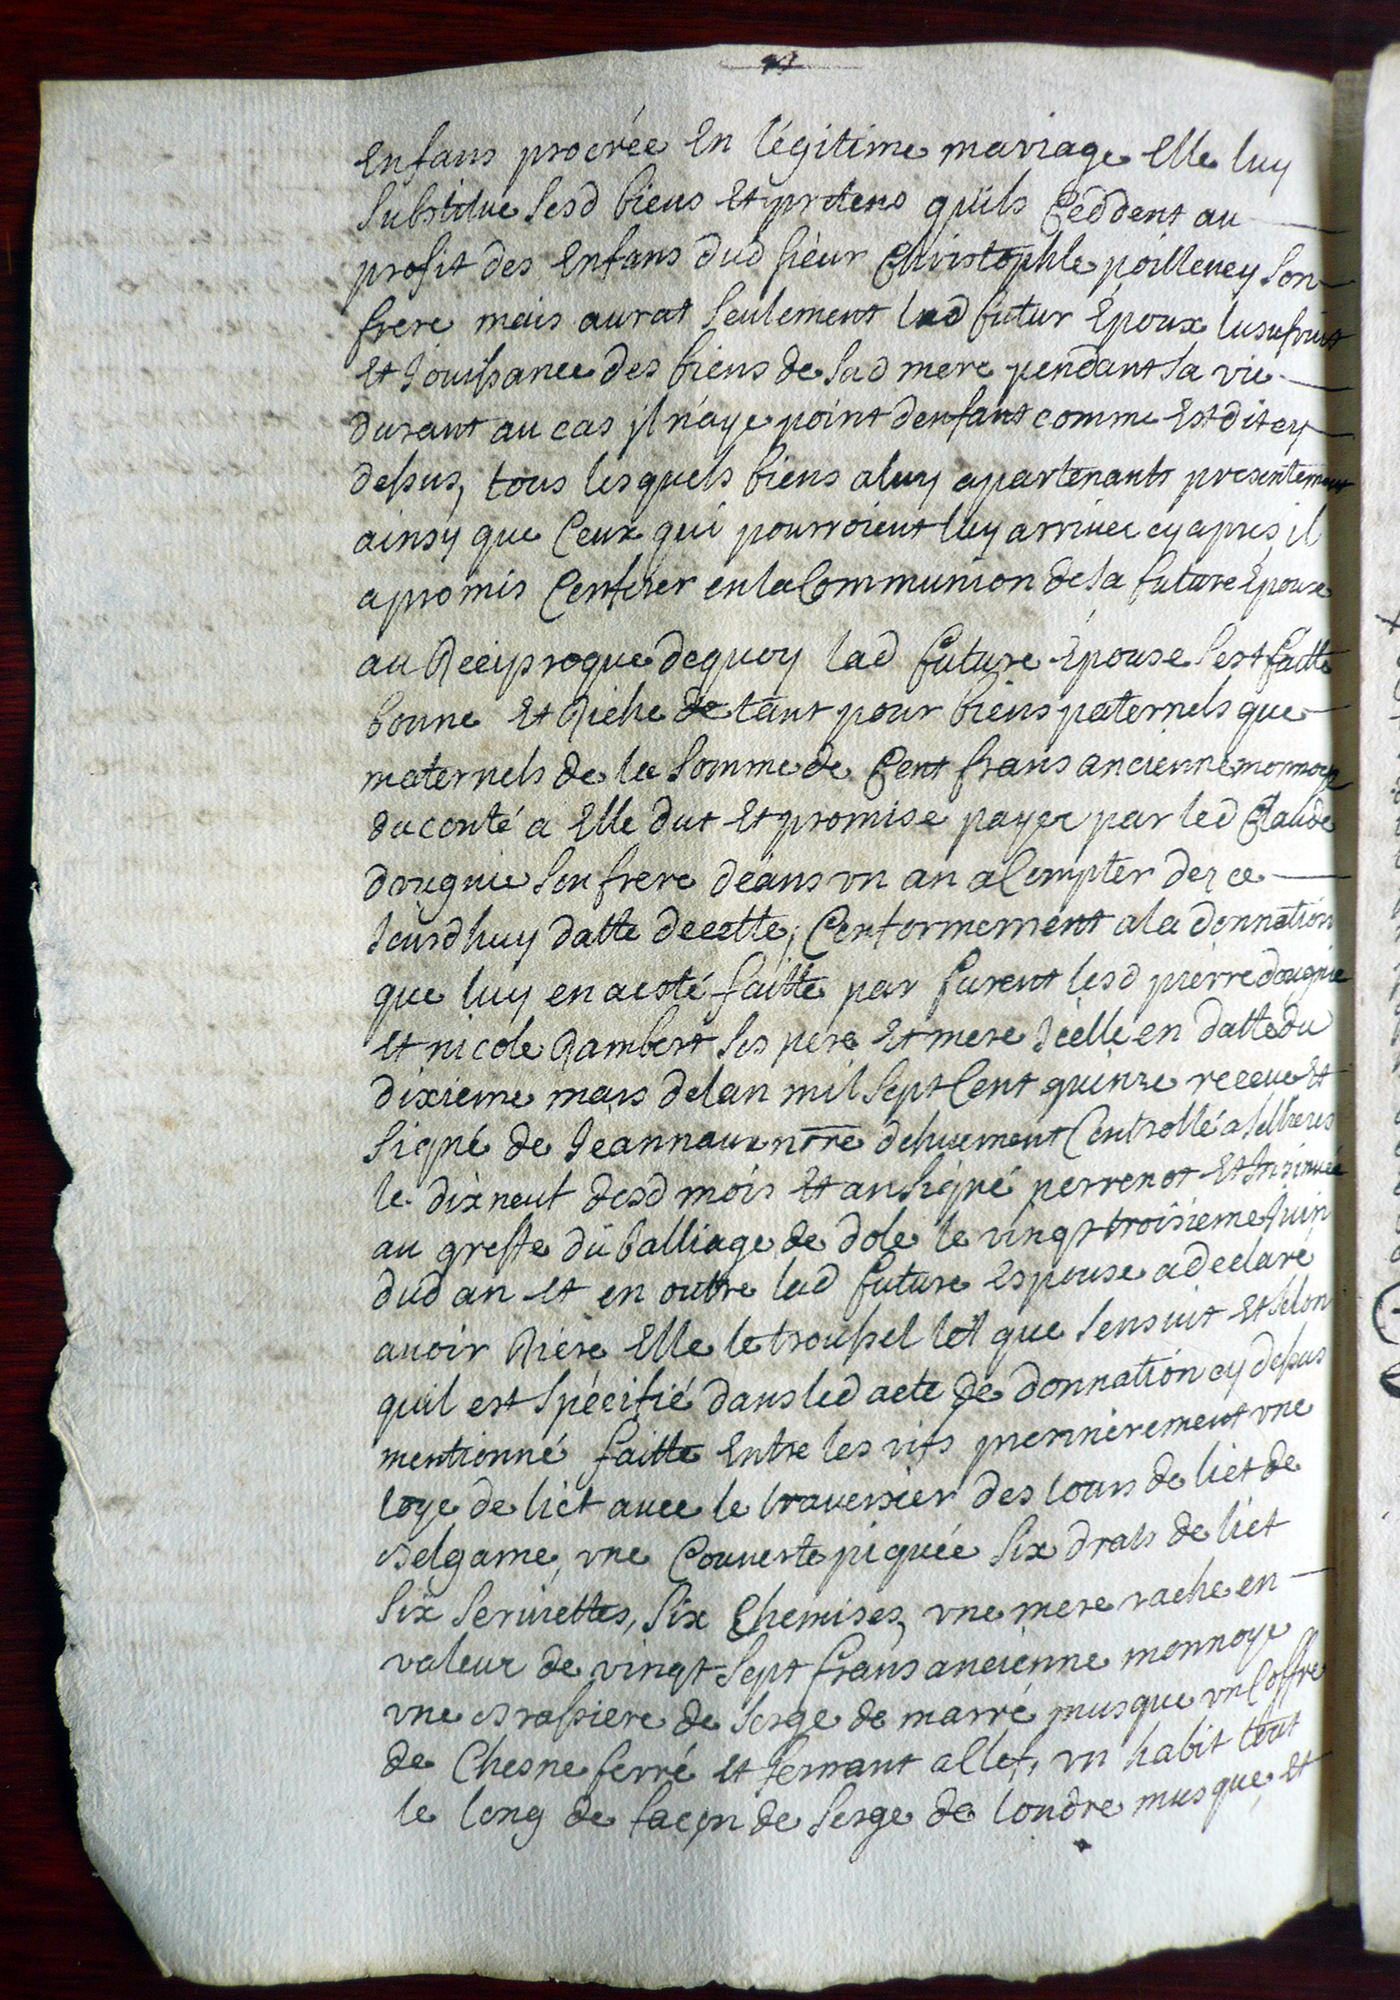 Enfans procrée En légitime mariage Elle luy
Substitue Sesd biens Et pretens quils Ceddent au
profit des Enfans dud sieur Christophle poilleney Son
frere mais aurat Seulement led futur Epoux lusufruit
Et Jouissance des biens de Sad mere pendant Sa vie
durant au cas jl naye point denfant comme Est dit cy
dessus, tous lesquels biens a luy apartenants presentement
ainsy que Ceux qui pourroient luy arriver cy apres, il
a promis Conferer en la Communion de sa future Epouse
au Reciproque dequoy lad future Epouse Sest faitte
bonne Et Riche de tant pour biens paternels que
maternels de la Somme de Cent frans ancienne monnoye
du conté a Elle dut Et promise payer par led Claude
dougnie Son frere deans vn an a Compter dez ce
Jourdhuy datte decette, Conformement a la donnation
que luy en a esté faitte par furent lesd pierre dougnie
Et nicole Rambert Ses pere Et mere Jcelle en datte du
dixieme mars delan mil Sept Cent quinze receue Et
Signé de Jeannaux nore dehuement Controllé a Sellieres
le dix neuf desd mois Et an Signé perrenot Et Insinuée
au greffe du balliage de dole le vingt troisieme Juin
dud an Et en outre lad future Espouse a declaré
avoir Riere Elle le troussel tel que Sensuit Et Selon
quil est Spécifié dans led acte de donnation cy dessus
mentionné faitte Entre les vifs premierement vne
loye de lict avec le traversier des tours de lict de
Belgame, vne Couverte piquée Six draps de lict
Six Serviettes, Six Chemises, vne mere vache en
valeur de vingt Sept frans ancienne monnoye
vne Brassiere de Serge de marré musque vn Coffre
de Chesne ferré Et fermant a clef, vn habit tout
le long de façon de Serge de londre musque, Et